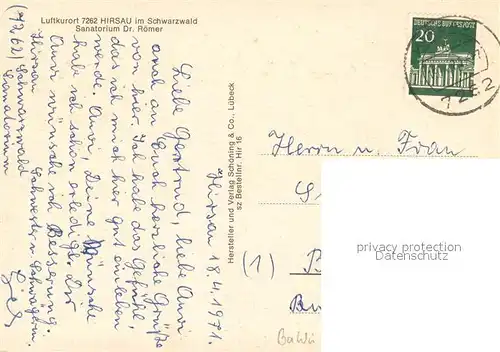 Luftkurort 7262 HIRSAU im Schwarzwald
Sanatorium Dr. Römer
Hirsau 18.4.1971.
Liebe Gertrud, liebe Anni
auch an Euch herzliche Grüße
von hier. Ich habe das Gefühl,
das ich mich hier gut einleben
werde. Anni, Deine Wünsche
habe ich schon erledigt. Dir
Anni wünsche ich Besserung.
Schwester u. Schwägerin
(7262) Schwarzwald
Hirsau
Sanatorium
Hersteller und Verlag Schöning & Co., Lübeck
sz Bestellnr. Hir 16
DEUTSCHE BUNDESPOST
20
7262
Herrn u. Frau
(1)
BaWü
privacy protection
for our customers